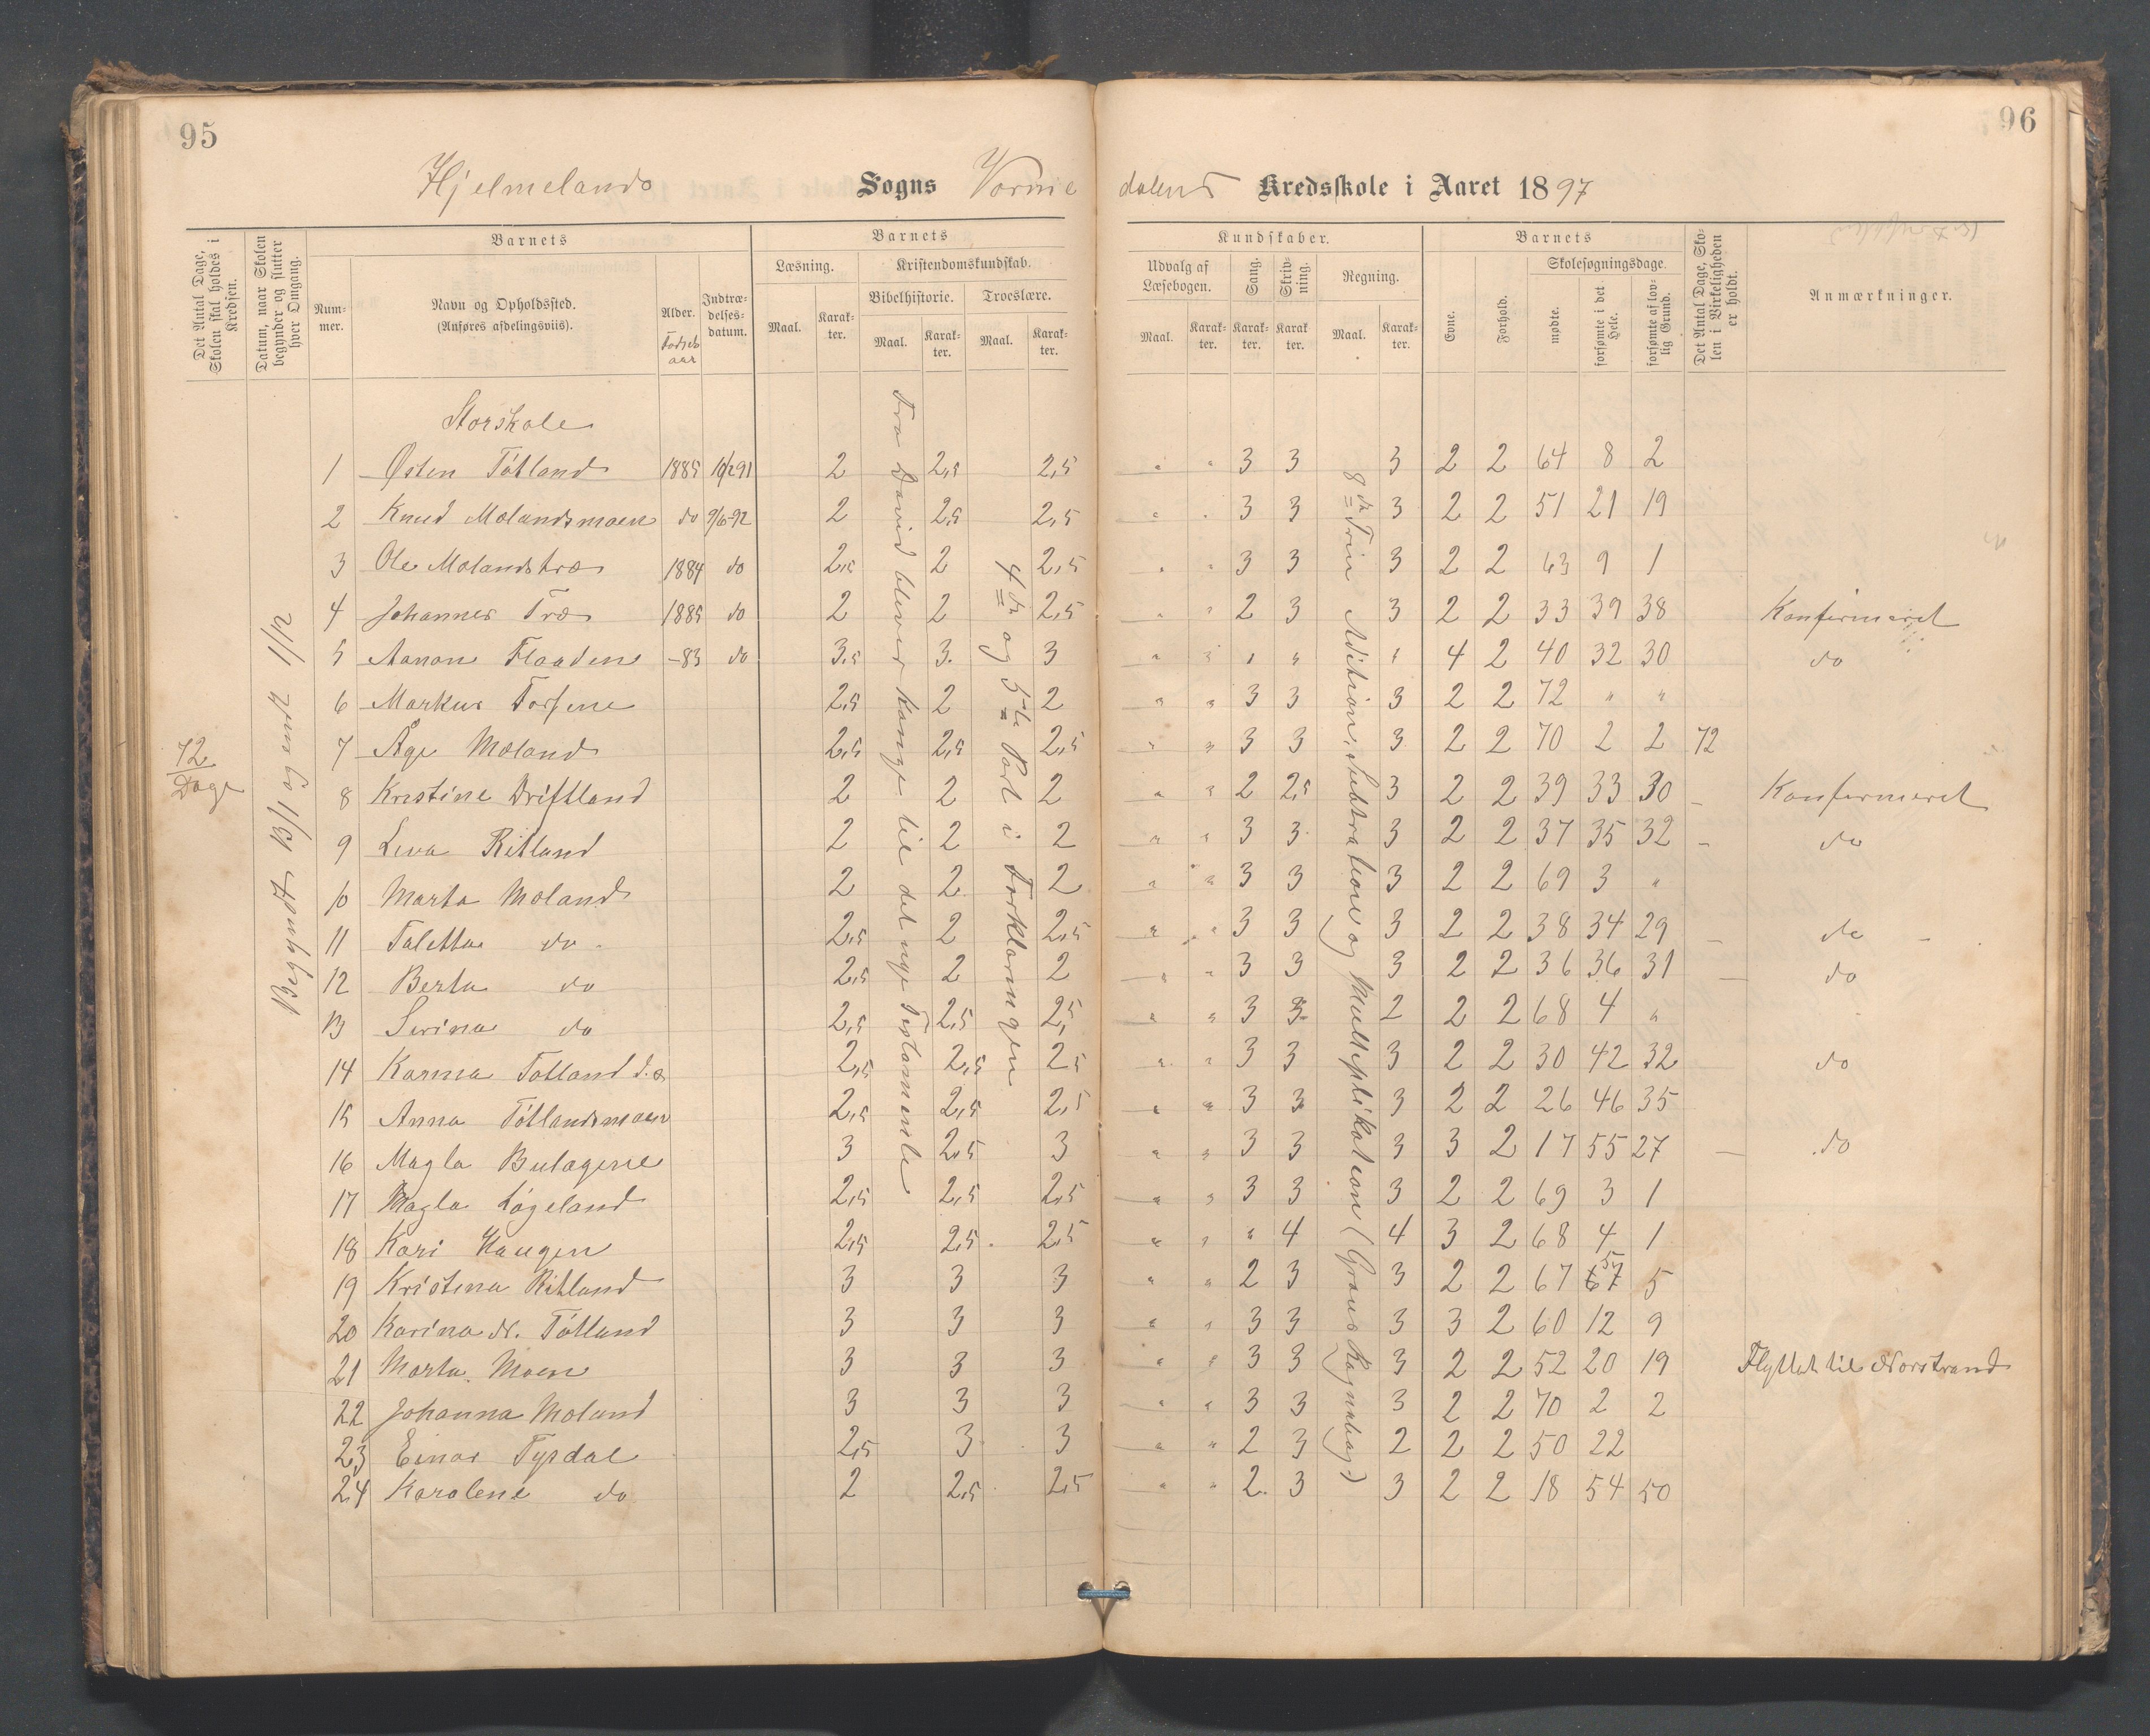 95
Hjelmelands Sogns Vormedalens Kredsskole i Aaret 1897
96
Det Antal Dage, Skolen skal holdes i Kredsen.
Datum, naar Skolen begynder og slutter hver Omgang.
Barnets
Nummer.
Navn og Opholdssted.
(Anføres afdelingsviis).
Alder. Fødselsaar
Indtrædelsesdatum.
Barnets
Læsning.
Maal. Karakter.
Kristendomskundskab.
Bibelhistorie. Troeslære.
Maal. Karakter. Maal. Karakter.
Kundskaber.
Udvalg af Læsebogen.
Maal. Karakter.
Sang. Karakter.
Skrivning. Karakter.
Regning.
Maal. Karakter.
Barnets
Evne. Forhold.
Skolesøgningsdage.
mødte. forsømte i det Hele. forsømte af lovlig Grund.
Det Antal Dage, Skolen i Virkeligheden er holdt.
Anmærkninger.
72 Dage
Begyndt 13/1 og endt 1/12
Fra David bliver Konge til det nye Testamente
4de og 5te Part i Forklaringen
8de Trin
Storskole
1 Østen Tøtland 1885 2 2,5 2,5 " " 3 3 3 2 2 64 8 2
2 Knud Mælandsmoen do 9/6-92 2 2,5 2,5 " " 3 3 3 2 2 51 21 19
3 Ole Mælandstræ 1884 do 2,5 2 2,5 " " 3 3 3 2 2 63 9 1
4 Johannes Træ 1885 do 2 2 2,5 " " 2 3 3 2 2 33 39 38 Konfirmeret
5 Aanon Flaaden -83 do 3,5 3. 3 " " " " " 4 2 40 32 30 do
6 Markus 2,5 2 2 " " 3 3 3 2 2 72 " "
7 Åge Mæland 2,5 2,5 2,5 " " 3 3 3 2 2 70 2 2 72
8 Kristine Driftland 2 2 2 " " 2 2,5 3 2 2 39 33 30 Konfirmeret
9 Lina Ritland 2 2 2 " " 3 3 3 2 2 37 35 32 do
10 Marta Mæland 2 2 2 " " 3 3 3 2 2 69 3 "
11 Taletta do 2,5 2 2,5 " " 3 3 3 2 2 38 34 29 do
12 Berta do 2,5 2 2 " " 3 3 3 2 2 36 36 31 do
13 Serina do 2,5 2,5 2,5 " " 3 3 2 2 2 68 4 "
14 Karina Tøtland 2,5 2,5 2,5 " " 3 3 3 2 2 30 42 32 do
15 Anna Tøtlandsmoen 2,5 2,5 2,5 " " 3 3 3 2 2 26 46 35
16 Magla 3 2,5 3 " " 3 3 3 3 2 17 55 27 do
17 Magla Løgeland 2,5 2,5 2,5 " " 3 3 3 2 2 69 3 1
18 Kari Haugen 2,5 2,5 2,5 " " " 4 4 3 2 68 4 1
19 Kristina Ritland 3 3 3 " " 2 3 3 2 2 67 5 5
20 Karina N. Tøtland 3 3 3 " " 3 3 3 3 2 60 12 9
21 Marta Moen 3 3 3 " " 3 3 3 2 2 52 20 19 Flyttet til Norstrand
22 Johanna Mæland 3 3 3 " " 3 3 3 2 2 70 2 2
23 Einar Tysdal 2,5 3 3 " " 2 3 2 2 2 50 22
24 Karolene do 2 2,5 2,5 " " 2 3 3 2 2 18 54 50